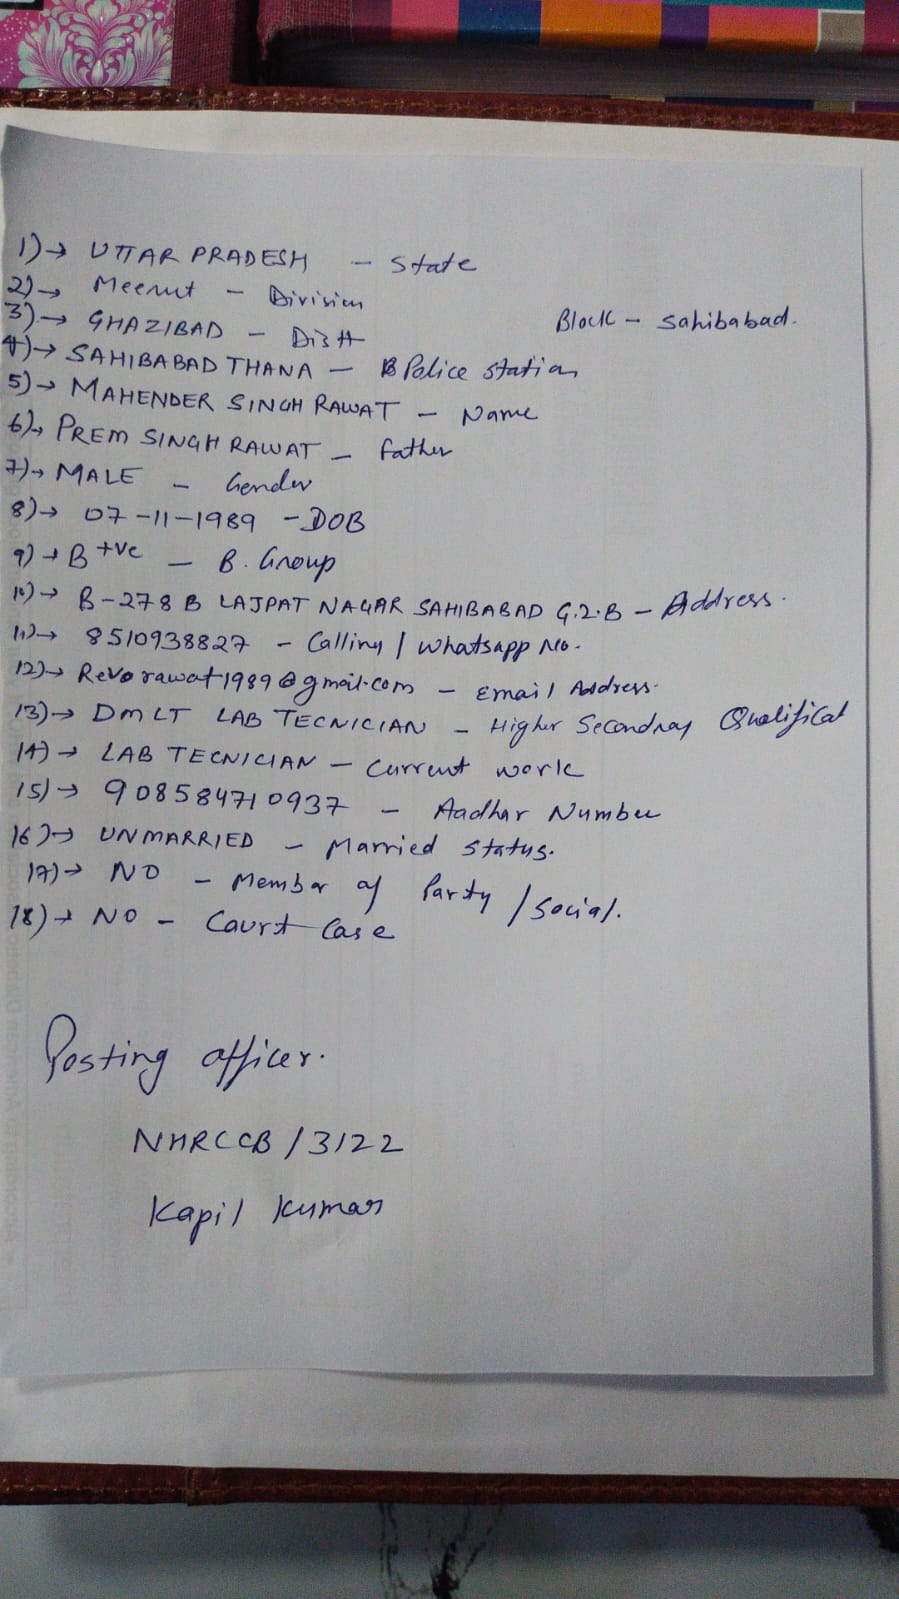 1)→ UTTAR PRADESH - State
2)→ Meerut - Division
3)→ GHAZIBAD - Distt
Block - Sahibabad.
4)→ SAHIBABAD THANA - Police Station
5)→ MAHENDER SINGH RAWAT - Name
6)→ PREM SINGH RAWAT - father
7)→ MALE - Gender
8)→ 07-11-1989 - DOB
9)→ B +ve - B. Group
10)→ B-278 B LAJPAT NAGAR SAHIBABAD G.Z.B - Address.
11)→ 8510938827 - Calling / Whatsapp No.
12)→ Revorawat1989@gmail.com - Email Address.
13)→ DMLT LAB TECNICIAN - Higher Secondray Qualificat
14)→ LAB TECNICIAN - Current work
15)→ 908584710937 - Aadhar Number
16)→ UNMARRIED - Married Status.
17)→ NO - Member of Party / Social.
18)→ NO - Court Case
Posting officer.
NHRCCB/3122
Kapil Kumar